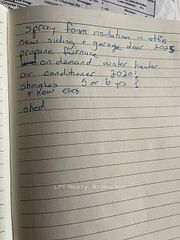 Spray foam insulation in attic
new siding + garage door 2025
propane furnace
on demand water heater
air conditioner 2020?
Shingles 5 or 6 yrs ?
+ new eves
shed